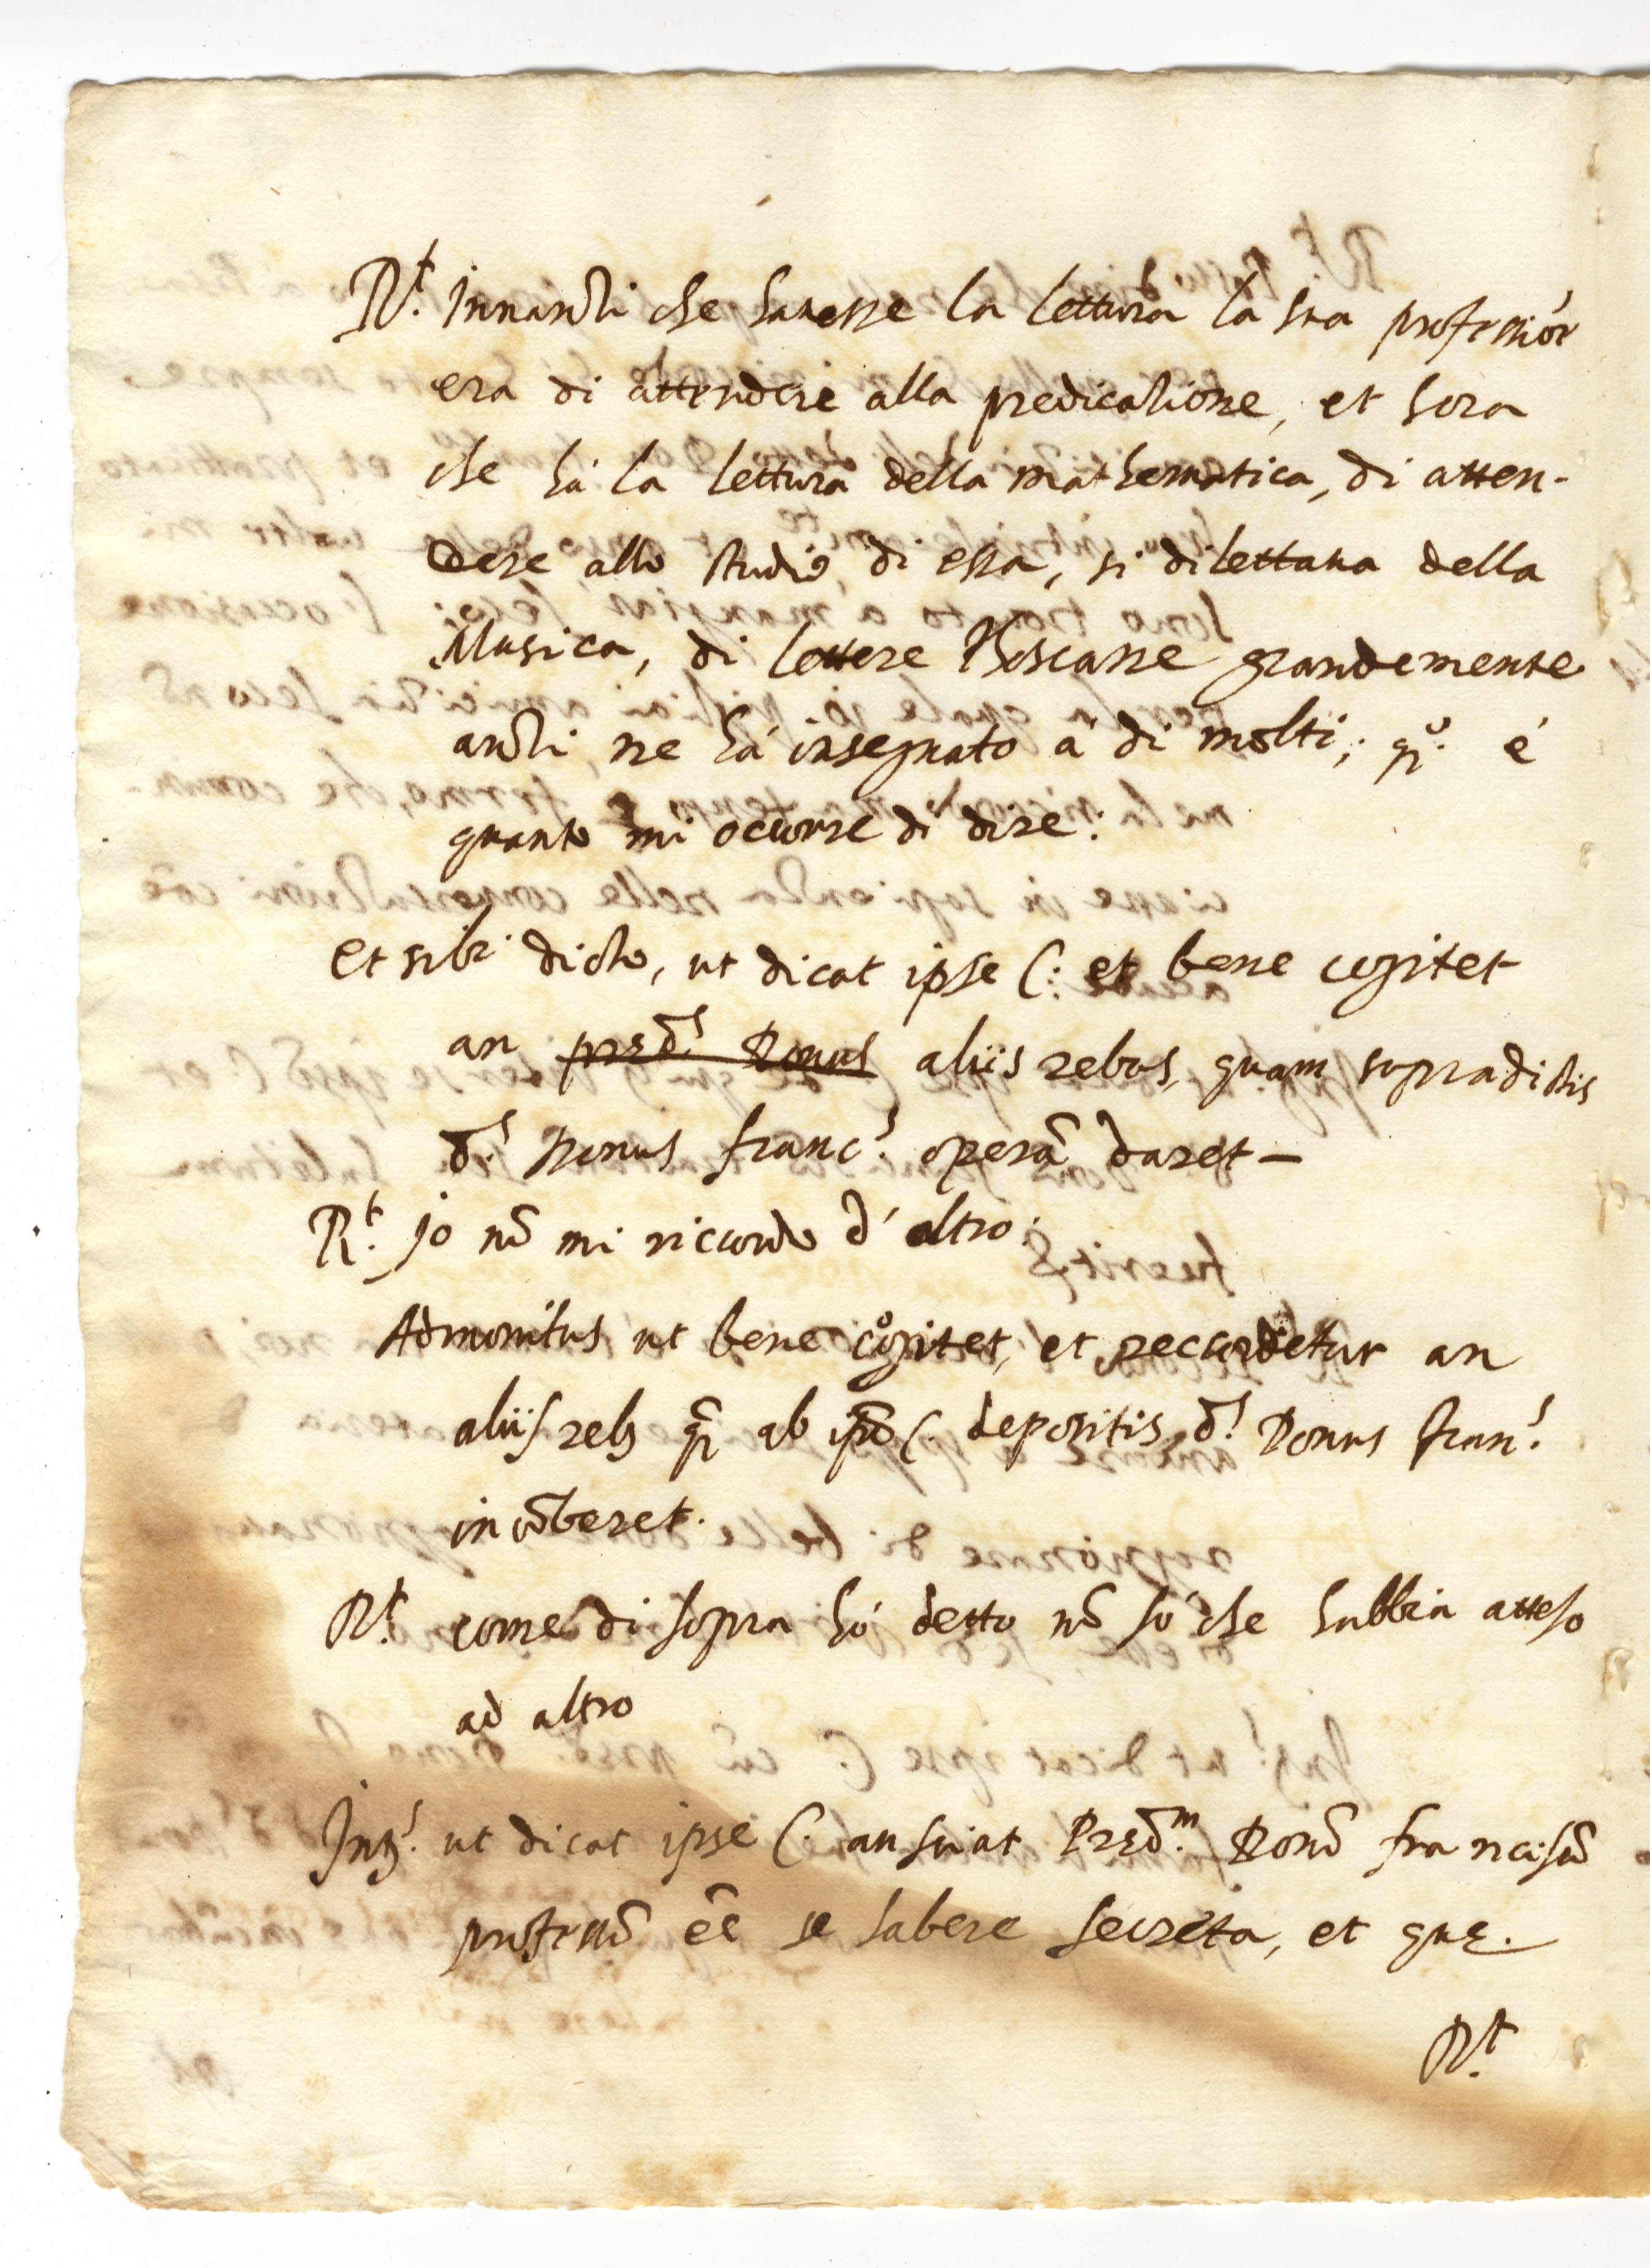 R.t Innanzi che havesse la lettura la sua profession
era di attendere alla predicatione, et hora
che hà la lettura della mathematica, di atten-
dere allo studio di essa, si dilettava della
Musica, di lettere Thoscane grandemente
anzi ne hà insegnato à di molti; qo. è
quanto mi ocurre di dire:
Et sibi dicto, ut dicat ipse C: et bene cogitet
an pred.s Donus aliis rebus, quam supradictis
d.s Donus Franc.s operā daret —
R.t Jo nō mi riccordo d'altro:
Admonitus ut bene cogitet, et reccordetur an
aliis reb; q̄ ab ipō C. depositis, d.s Donus Fran.s
incūberet.
R.t come di sopra hò detto nō sò che habbia atteso
ad altro
Int.s ut dicat ipse C. an sciat Pred.m Donū Franciscū
professū eē se habere secreta, et que.
R.t